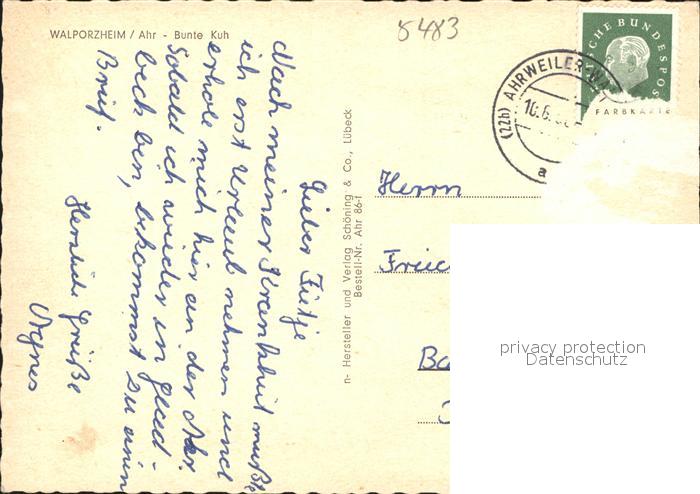 WALPORZHEIM / Ahr - Bunte Kuh
8483
DEUTSCHE BUNDESPOST
(22b) AHRWEILER-W
10.6.
a
FARBKARTE
Lieber Fietje
Nach meiner Krankheit mußte
ich erst Urlaub nehmen und
erhole mich hier an der Ahr.
Sobald ich wieder in
beck bin, bekommst Du einen
Brief.
Herzliche Grüße
Agnes
n- Hersteller und Verlag Schöning & Co., Lübeck
Bestell-Nr. Ahr 86-f
Herrn
Frie
Ba
privacy protection
Datenschutz